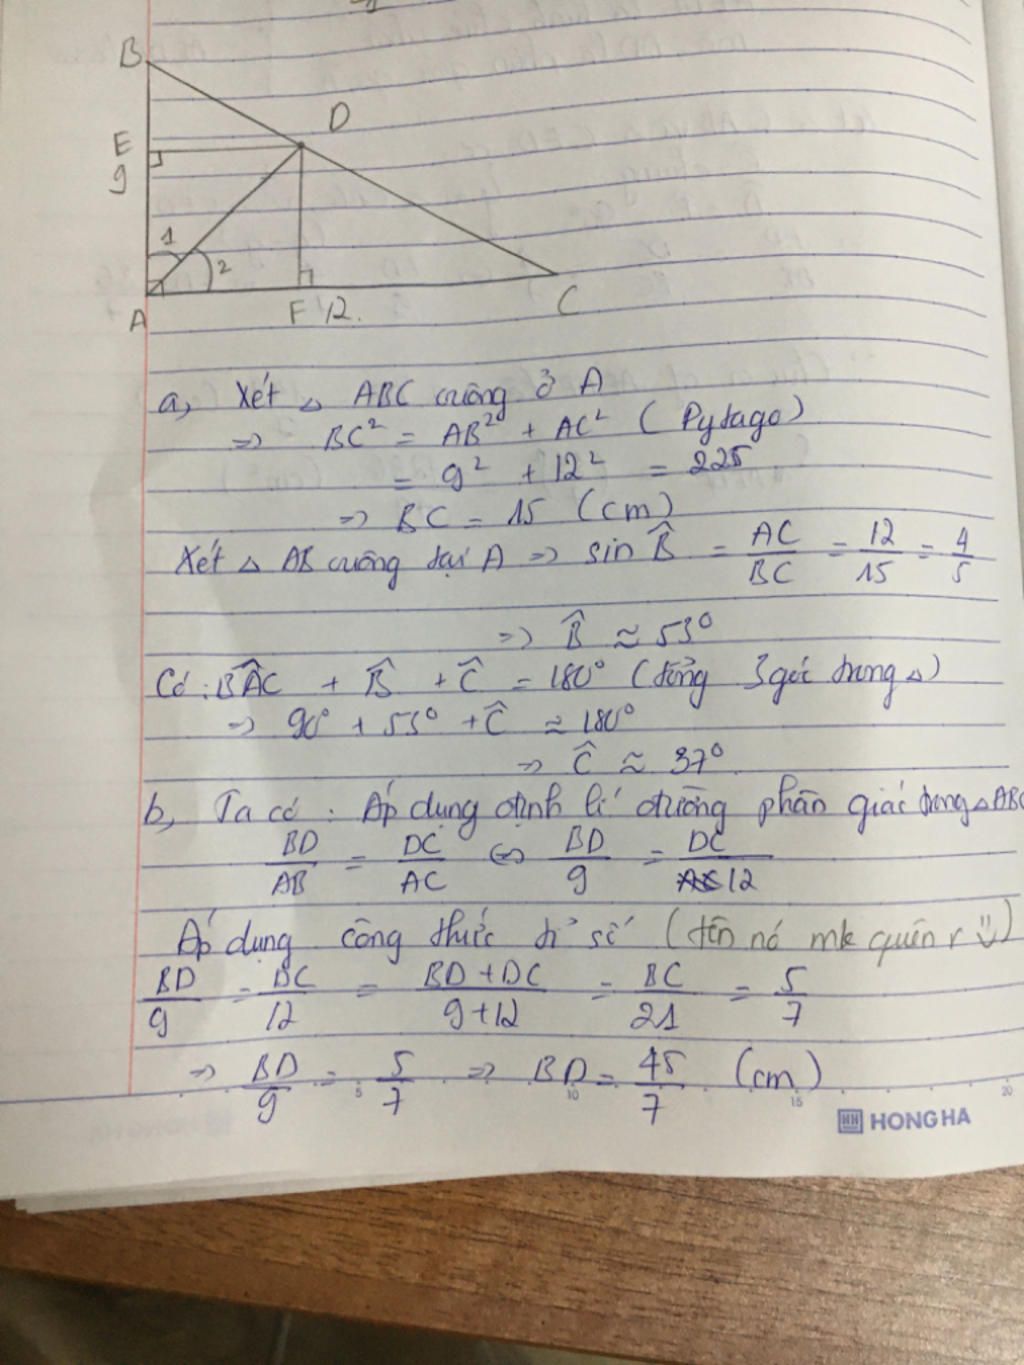 B
D
E
9
1
2
A
F 12.
C
a, Xét △ ABC vuông ở A
=> BC² = AB² + AC² ( Pytago)
= 9² + 12² = 225
=> BC = 15 (cm)
Xét △ AB vuông tại A => sin B̂ = AC/BC = 12/15 = 4/5
=> B̂ ≈ 53°
Có : BÂC + B̂ + Ĉ = 180° (tổng 3 góc trong △)
=> 90° + 53° + Ĉ ≈ 180°
=> Ĉ ≈ 37°
b, Ta có : Áp dụng định lí đường phân giác trong △ABC
BD/AB = DC/AC <=> BD/9 = DC/12
Áp dụng công thức tỉ số (tên nó mk quên r)
BD/9 = DC/12 = BD+DC/9+12 = BC/21 = 5/7
=> BD/9 = 5/7 => BD = 45/7 (cm)
5 10 15 20
HH HONG HA